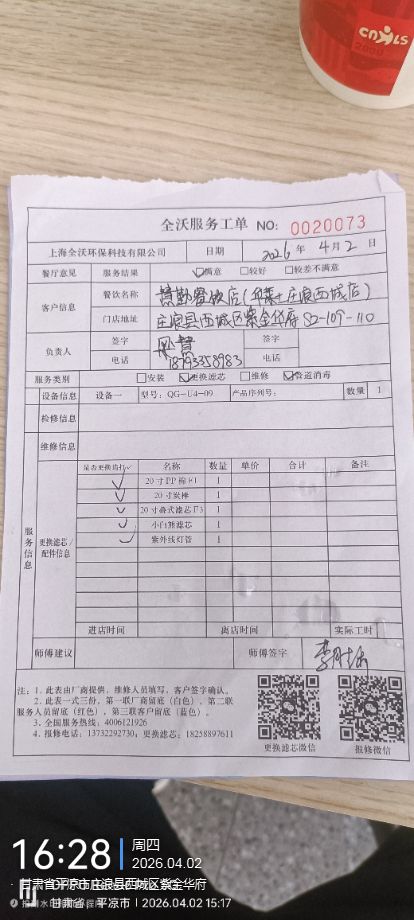 CNHLS
全沃服务工单 NO: 0020073
上海全沃环保科技有限公司 日期 2026 年 4 月 2 日
餐厅意见 服务结果 ☑满意 □较好 □较差不满意
客户信息 餐饮名称 餐饮店(华莱士庄浪西城店)
门店地址 庄浪县西城区紫金华府 S2-109-110
负责人 签字 签字
电话 18793358983 电话
服务类别 □安装 ☑更换滤芯 □维修 ☑管道消毒
设备信息 设备一 型号:QG-U4-09 产品序列号: 数量 1
检修信息
维修信息
服务信息
更换滤芯/配件信息
是否更换请打✓ 名称 数量 单价 合计 备注
✓ 20寸PP棉 1
✓ 20寸炭棒 1
✓ 20寸叠式滤芯F3 1
✓ 小白熊滤芯 1
✓ 紫外线灯管 1
进店时间 离店时间 实际工时
师傅建议 师傅签字
注:1.此表由厂商提供,维修人员填写,客户签字确认。
2.此表一式三份,第一联厂商留底(白色),第二联
服务人员留底(红色),第三联客户留底(蓝色)。
3.全国服务热线:4006121926
4.报修电话:13732292730;更换滤芯:18258897611
更换滤芯微信 报修微信
16:28 周四
2026.04.02
甘肃省平凉市庄浪县西城区紫金华府
甘肃省 平凉市 2026.04.02 15:17